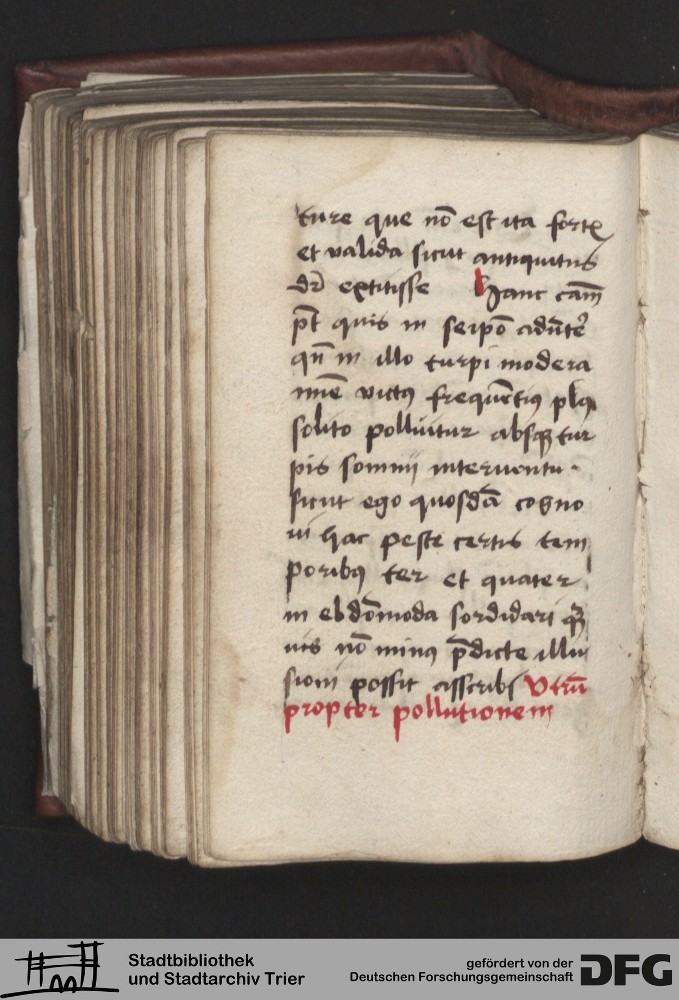 ture que nō est ita fortꝭ
et valida sicut antiquitus
dr̄ extitisse Hanc cām
pt̄ quis in seipō adūte͛
qn̄ in illo turpi modera
mīe victꝰ frequētiꝰ plꝰ
solito polluitur absqꝫ tur
pis somnij interuentu ·
sicut ego quosdā cogno
ui hac peste certis tem
poribꝰ ter et quater
in ebdōmoda sordidari qꝫ̄
uis nō minꝰ p̄dicte illu
sioni possit asscribi Vtrū
propter pollutionem
Stadtbibliothek
und Stadtarchiv Trier
gefördert von der
Deutschen Forschungsgemeinschaft
DFG